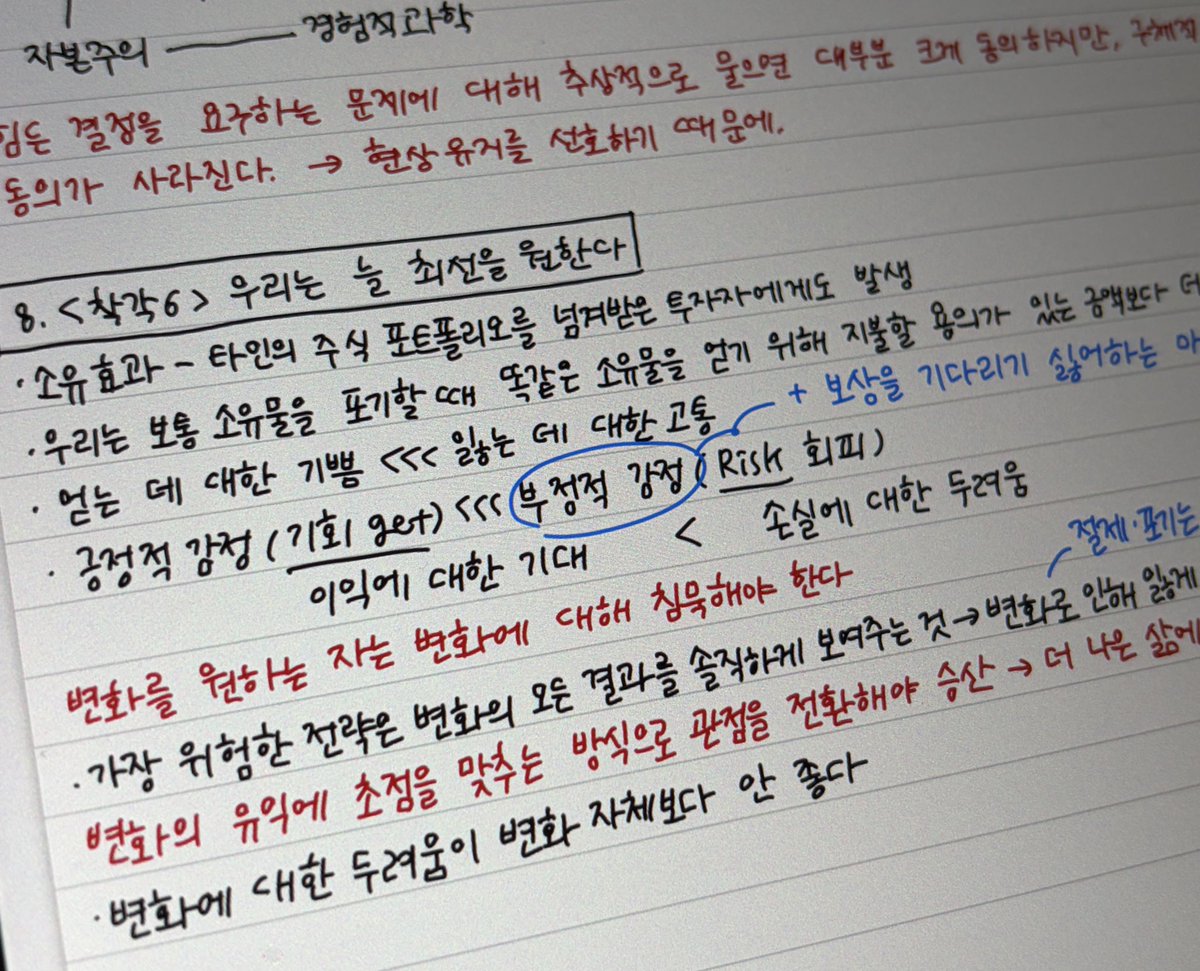 자본주의 ——— 경험적과학
힘든 결정을 요구하는 문제에 대해 추상적으로 물으면 대부분 크게 동의하지만, 구체적
동의가 사라진다. → 현상유지를 선호하기 때문에.
8. <착각6> 우리는 늘 최선을 원한다
· 소유효과 - 타인의 주식 포트폴리오를 넘겨받은 투자자에게도 발생
· 우리는 보통 소유물을 포기할 때 똑같은 소유물을 얻기 위해 지불할 용의가 있는 금액보다 더
+ 보상을 기다리기 싫어하는 마
· 얻는 데 대한 기쁨 <<< 잃는 데 대한 고통
· 긍정적 감정 (기회 get) <<< 부정적 감정 (Risk 회피)
이익에 대한 기대 < 손실에 대한 두려움
절제·포기는
변화를 원하는 자는 변화에 대해 침묵해야 한다
· 가장 위험한 전략은 변화의 모든 결과를 솔직하게 보여주는 것 → 변화로 인해 잃게
변화의 유익에 초점을 맞추는 방식으로 관점을 전환해야 승산 → 더 나은 삶에
· 변화에 대한 두려움이 변화 자체보다 안 좋다